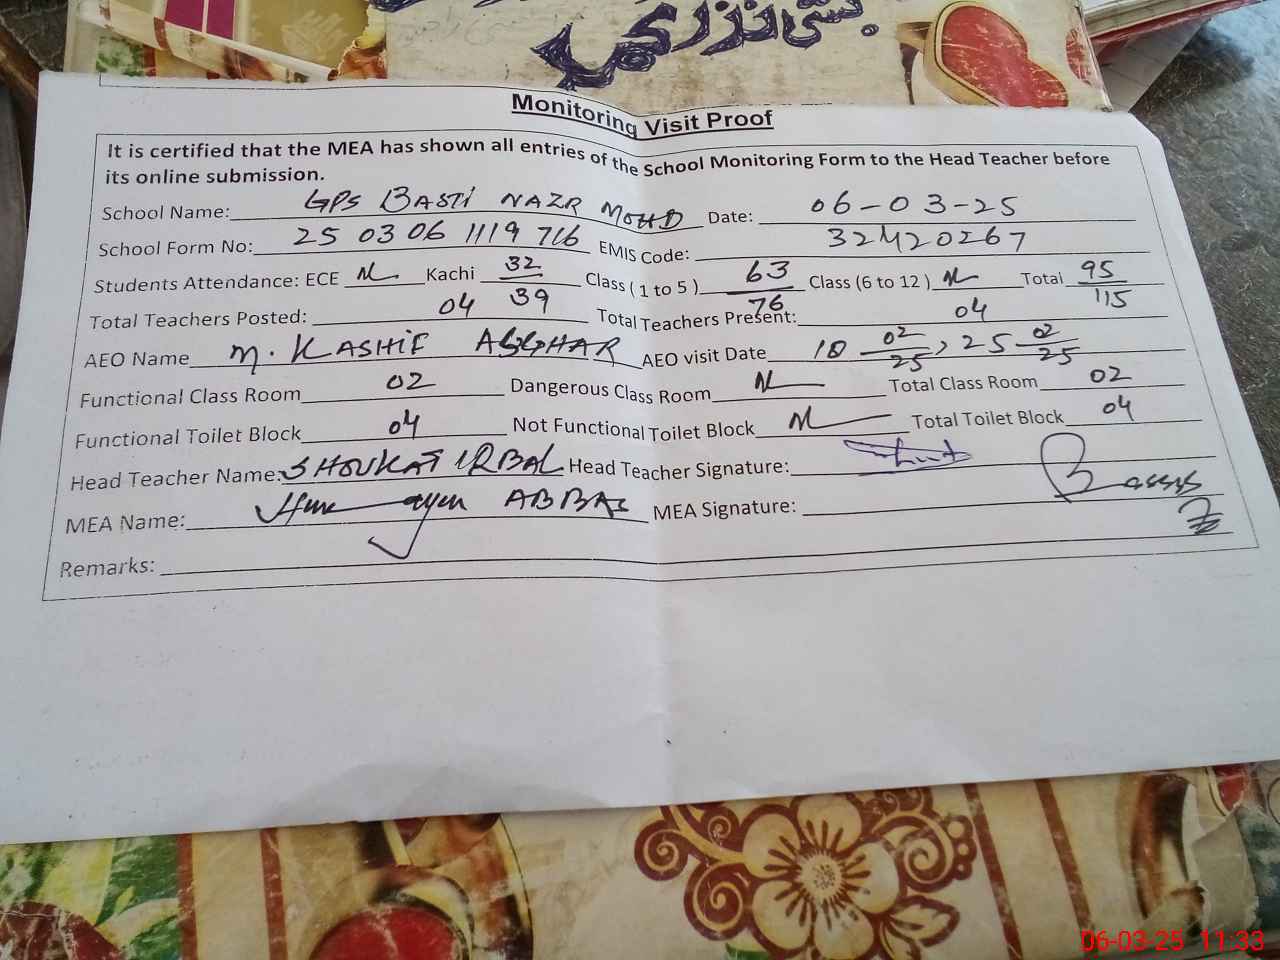 بستی نذر
Monitoring Visit Proof
It is certified that the MEA has shown all entries of the School Monitoring Form to the Head Teacher before
its online submission.
School Name: GPS BASTI NAZR MOHD Date: 06-03-25
School Form No: 25 03 06 1119 716 EMIS Code: 32420267
Students Attendance: ECE NL Kachi 32/39 Class ( 1 to 5 ) 63/76 Class (6 to 12 ) NL Total 95/115
Total Teachers Posted: 04 Total Teachers Present: 04
AEO Name M. KASHIF ASGHAR AEO visit Date 18 02/25, 25 02/25
Functional Class Room 02 Dangerous Class Room NL Total Class Room 02
Functional Toilet Block 04 Not Functional Toilet Block NL Total Toilet Block 04
Head Teacher Name: SHOUKAT IQBAL Head Teacher Signature:
MEA Name: ABBAS MEA Signature:
Remarks:
06-03-25 11:33